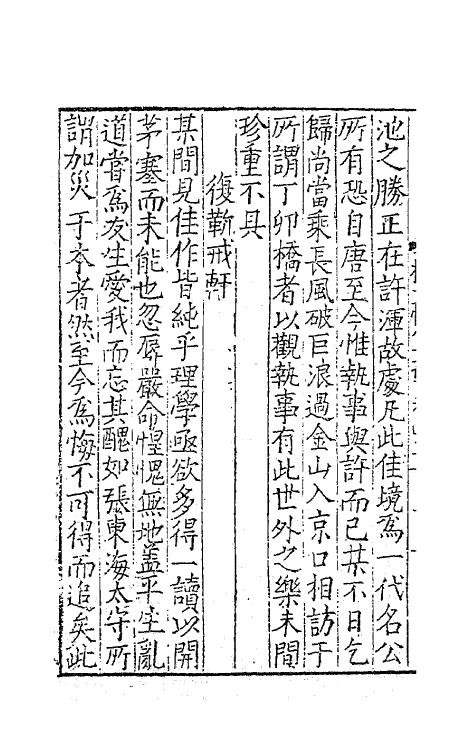 池之勝正在許渾故處凡此佳境爲一代名公
所有恐自唐至今惟執事與許而已某不日乞
歸尚當乘長風破巨浪過金山入京口相訪于
所謂丁卯橋者以觀執事有此世外之樂未間
珍重不具
復靳戒軒
某間見佳作皆純乎理學亟欲多得一讀以開
茅塞而未能也忽辱嚴命惶愧無地盖平生亂
道嘗爲友生愛我而忘其醜如張東海太守所
謂加災于本者然至今爲悔不可得而追矣此